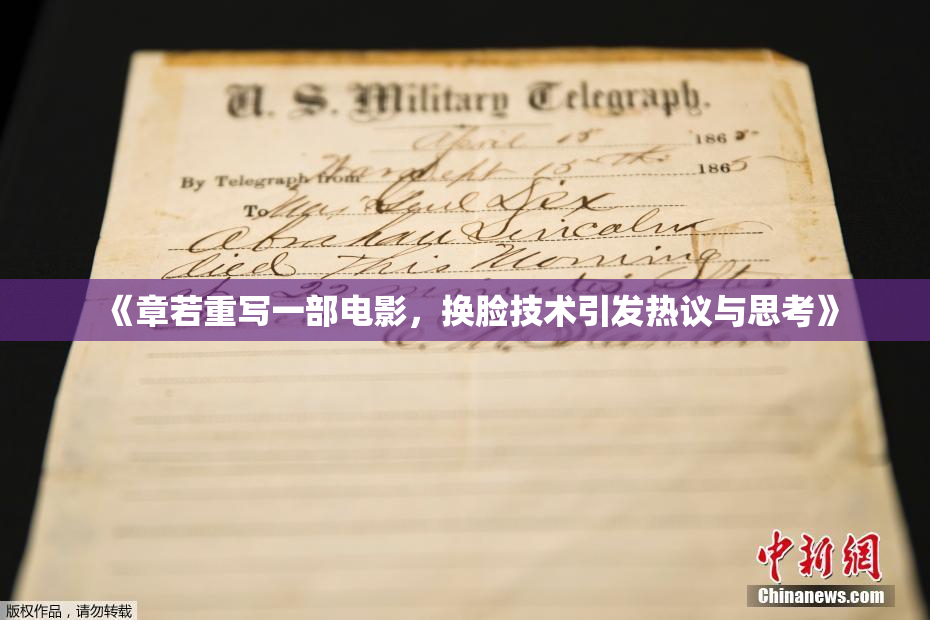 U. S. Military Telegraph.
April 15 1865
By Telegraph from War Dept 15th 1865
To Maj Genl Dix
Abraham Lincoln
died This Morning
at 22 minutes after
《章若重写一部电影，换脸技术引发热议与思考》
E. M. Stanton
中新网
Chinanews.com
版权作品，请勿转载